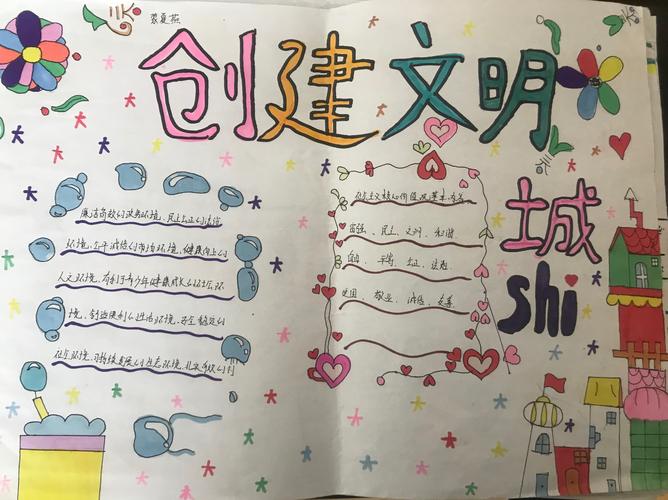 创建文明
城
shi
廉洁高效的政务环境、民主公正的法治
环境、公平诚信的市场环境、健康向上的
人文环境、有利于青少年健康成长的社会环
境、舒适便利的生活环境、安全稳定的
社会环境、可持续发展的生态环境、扎实有效的
社会主义核心价值观基本内容
富强、民主、文明、和谐
自由、平等、公正、法治
爱国、敬业、诚信、友善